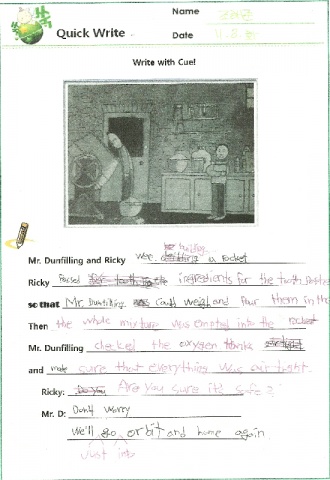 Quick Write
Name
Date
Write with Cue!
Mr. Dunfilling and Ricky were building a rocket
Ricky Passed the ingredients for the tooth paste
so that Mr. Dunfilling could weigh and Pour them in the
Then the whole mixture was emptied into the rocket
Mr. Dunfilling checked the oxygen tanks
and made sure that everything was air tight.
Ricky: Are you sure it's safe?
Mr. D: Don't worry
We'll go orbit and home again
Just into